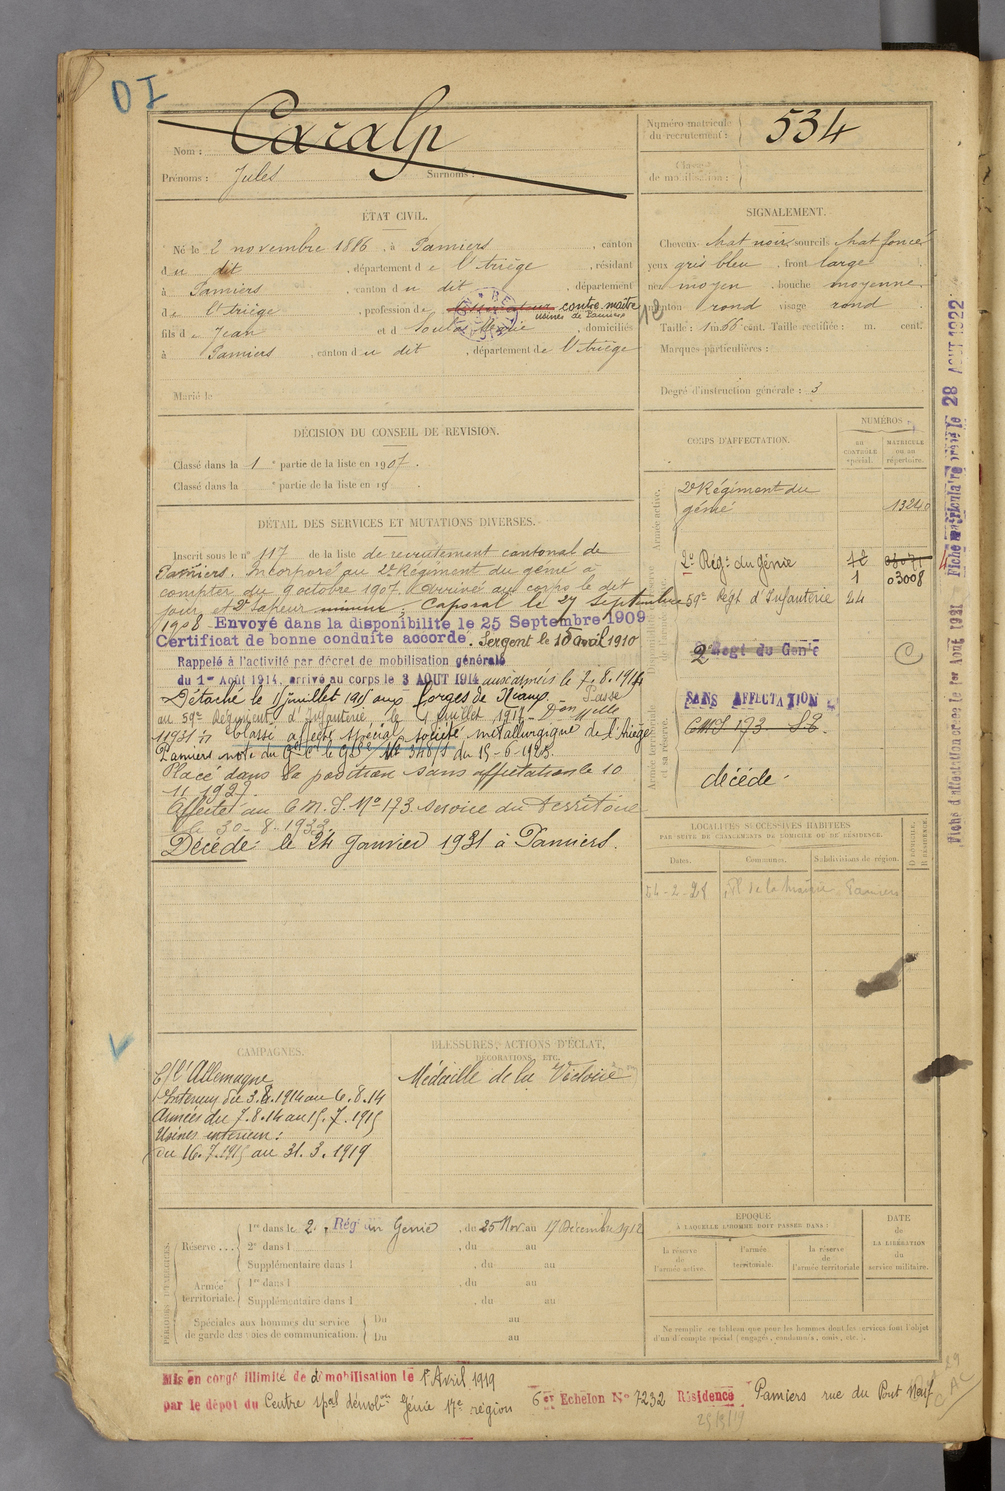 DI
Nom : Caralp
Prénoms : Jules Surnoms :
Numéro matricule du recrutement : 534
Classe de mobilisation :
ÉTAT CIVIL.
Né le 2 novembre 1886, à Pamiers, canton
du dit, département de l'Ariège, résidant
à Pamiers, canton du dit, département
de l'Ariège, profession de contre maître
usines de Pamiers
fils de Jean et d domiciliés
à Pamiers, canton du dit, département de l'Ariège
Marié le
SIGNALEMENT.
Cheveux chat noir sourcils chat foncé
yeux gris bleu, front large
nez moyen, bouche moyenne
menton rond visage rond
Taille : 1m 66 cent. Taille rectifiée : m. cent.
Marques particulières :
Degré d'instruction générale : 3
DÉCISION DU CONSEIL DE REVISION.
Classé dans la 1e partie de la liste en 1907.
Classé dans la e partie de la liste en 19 .
DÉTAIL DES SERVICES ET MUTATIONS DIVERSES.
Inscrit sous le n° 117 de la liste de recrutement cantonal de
Pamiers. Incorporé au 2e Régiment du génie à
compter du 9 octobre 1907. Arrivé au corps le dit
jour et 2e sapeur mineur, Caporal le 27 Septembre
1908 Envoyé dans la disponibilité le 25 Septembre 1909
Certificat de bonne conduite accordé. Sergent le 10 avril 1910
Rappelé à l'activité par décret de mobilisation générale
du 1er Août 1914, arrivé au corps le 3 AOUT 1914 aux armées le 7.8.1914
Détaché le 11 juillet 1915 aux forges de Niaux. Passé
au 59e Régiment d'Infanterie le 1 juillet 1917
Classé affecté spécial société métallurgique de l'Ariège
Pamiers note du Gal Ct le 348/S du 15-6-1925.
Placé dans la position sans affectation le 10
11 1927.
Affecté au C.M.I. No 173 service du Territoire
le 30-8-1933
Décédé le 24 Janvier 1931 à Pamiers.
CORPS D'AFFECTATION.
NUMÉROS
au CONTRÔLE spécial.
MATRICULE ou au répertoire.
Armée active.
2e Régiment du
génie 13240
2e Régt du Génie
1 03008
59e Régt d'Infanterie 24
2e Régt du Génie C
Armée territoriale et sa réserve.
SANS AFFECTATION
décédé.
LOCALITÉS SUCCESSIVES HABITÉES
PAR SUITE DE CHANGEMENTS DE DOMICILE OU DE RÉSIDENCE.
Dates. Communes. Subdivisions de région. D DOMICILE. R RÉSIDENCE.
Pl de la Mairie Pamiers
Fiche matriculaire créée le 28 AOUT 1922
Fiche d'affectation créée le 1er Août 1931
CAMPAGNES.
C/ l'Allemagne
Intérieur du 3.8.1914 au 6.8.14
Armées du 7.8.14 au 15.7.1915
Usines intérieur :
du 16.7.1915 au 31.3.1919
BLESSURES, ACTIONS D'ÉCLAT,
DÉCORATIONS, ETC.
Médaille de la Victoire
PÉRIODES D'EXERCICES.
Réserve ...
1re dans le 2e Rég du Génie, du 25 Nov. au 17 Décembre 1912
2e dans l , du au
Supplémentaire dans l , du au
Armée territoriale.
1re dans l , du au
Supplémentaire dans l , du au
Spéciales aux hommes du service
de garde des voies de communication.
Du au
Du au
ÉPOQUE
À LAQUELLE L'HOMME DOIT PASSER DANS :
la réserve de l'armée active.
l'armée territoriale.
la réserve de l'armée territoriale
DATE de LA LIBÉRATION du service militaire.
Ne remplir ce tableau que pour les hommes dont les services font l'objet
d'un décompte spécial (engagés, condamnés, omis, etc.).
Mis en congé illimité de démobilisation le 1er Avril 1919
par le dépot du Centre démobon Génie 17e région 6e Echelon N° 7232 Résidence Pamiers rue du Pont Neuf